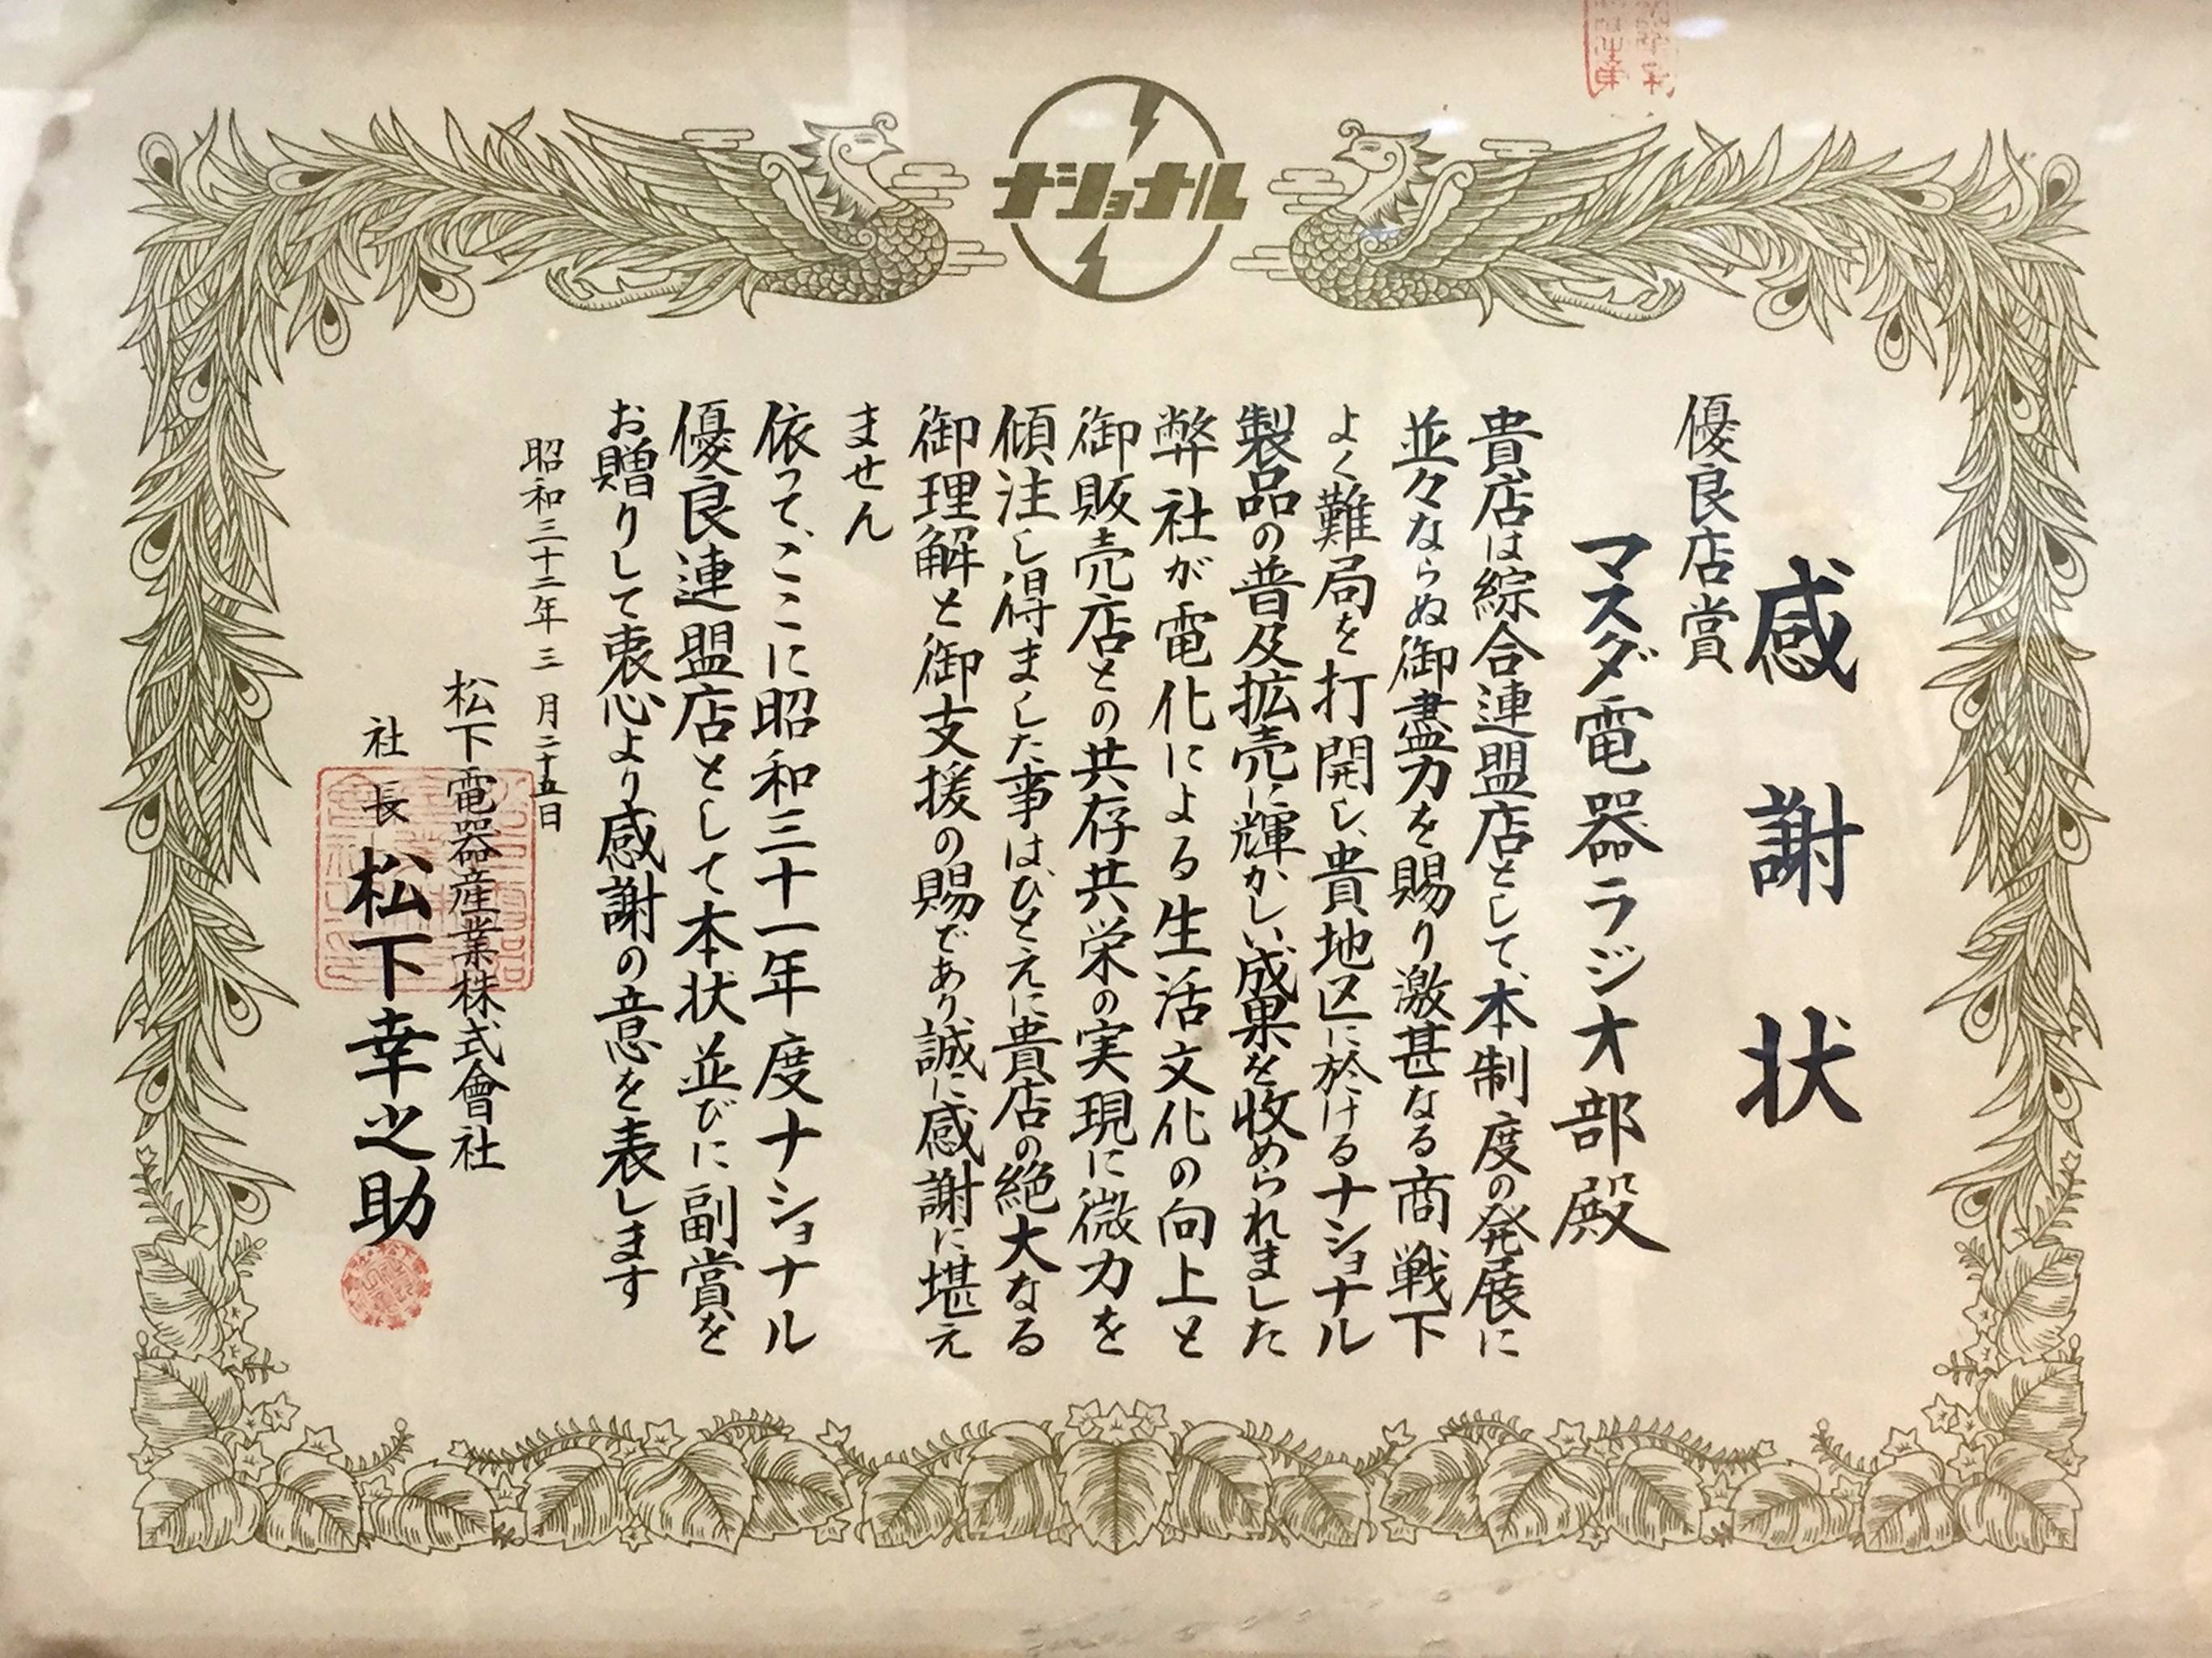 ナショナル
感謝状
優良店賞
マスダ電器ラジオ部殿
貴店は綜合連盟店として、本制度の発展に
並々ならぬ御盡力を賜り激甚なる商戦下
よく難局を打開し、貴地区に於けるナショナル
製品の普及拡売に輝かしい成果を收められました
弊社が電化による生活文化の向上と
御販売店との共存共栄の実現に微力を
傾注し得ました事は、ひとえに貴店の絶大なる
御理解と御支援の賜であり、誠に感謝に堪え
ません
依って、ここに昭和三十一年度ナショナル
優良連盟店として本状並びに副賞を
お贈りして衷心より感謝の意を表します
昭和三十二年三月二十五日
松下電器産業株式會社
社長 松下幸之助